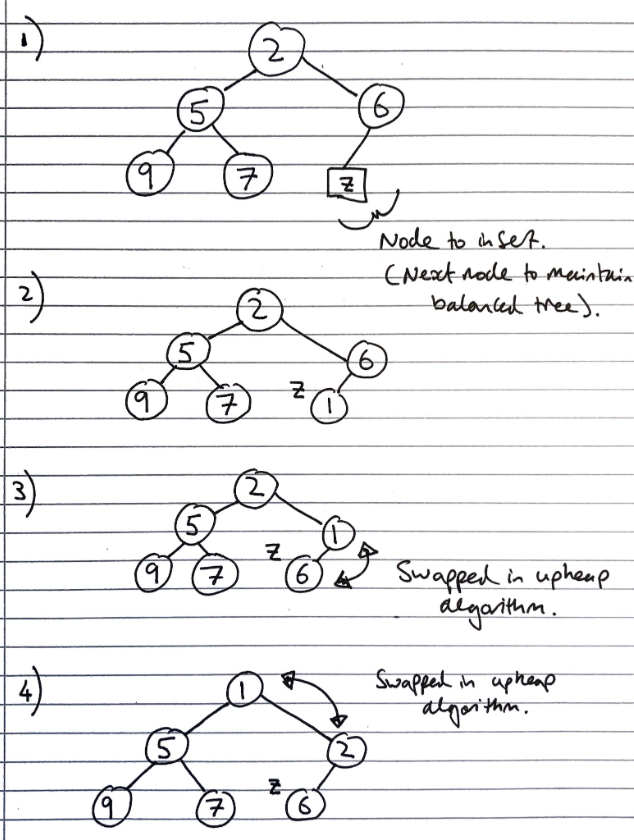 1)
2
5 6
9 7 z
Node to insert.
(Next node to maintain
balanced tree).
2)
2
5 6
9 7 z 1
3)
2
5 1
9 7 z 6
Swapped in upheap
algorithm.
4)
1
Swapped in upheap
algorithm.
5 2
9 7 z 6